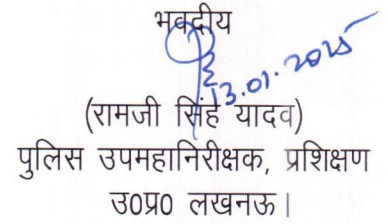 भवदीय
13.01.2025
(रामजी सिंह यादव)
पुलिस उपमहानिरीक्षक, प्रशिक्षण
उ0प्र0 लखनऊ।